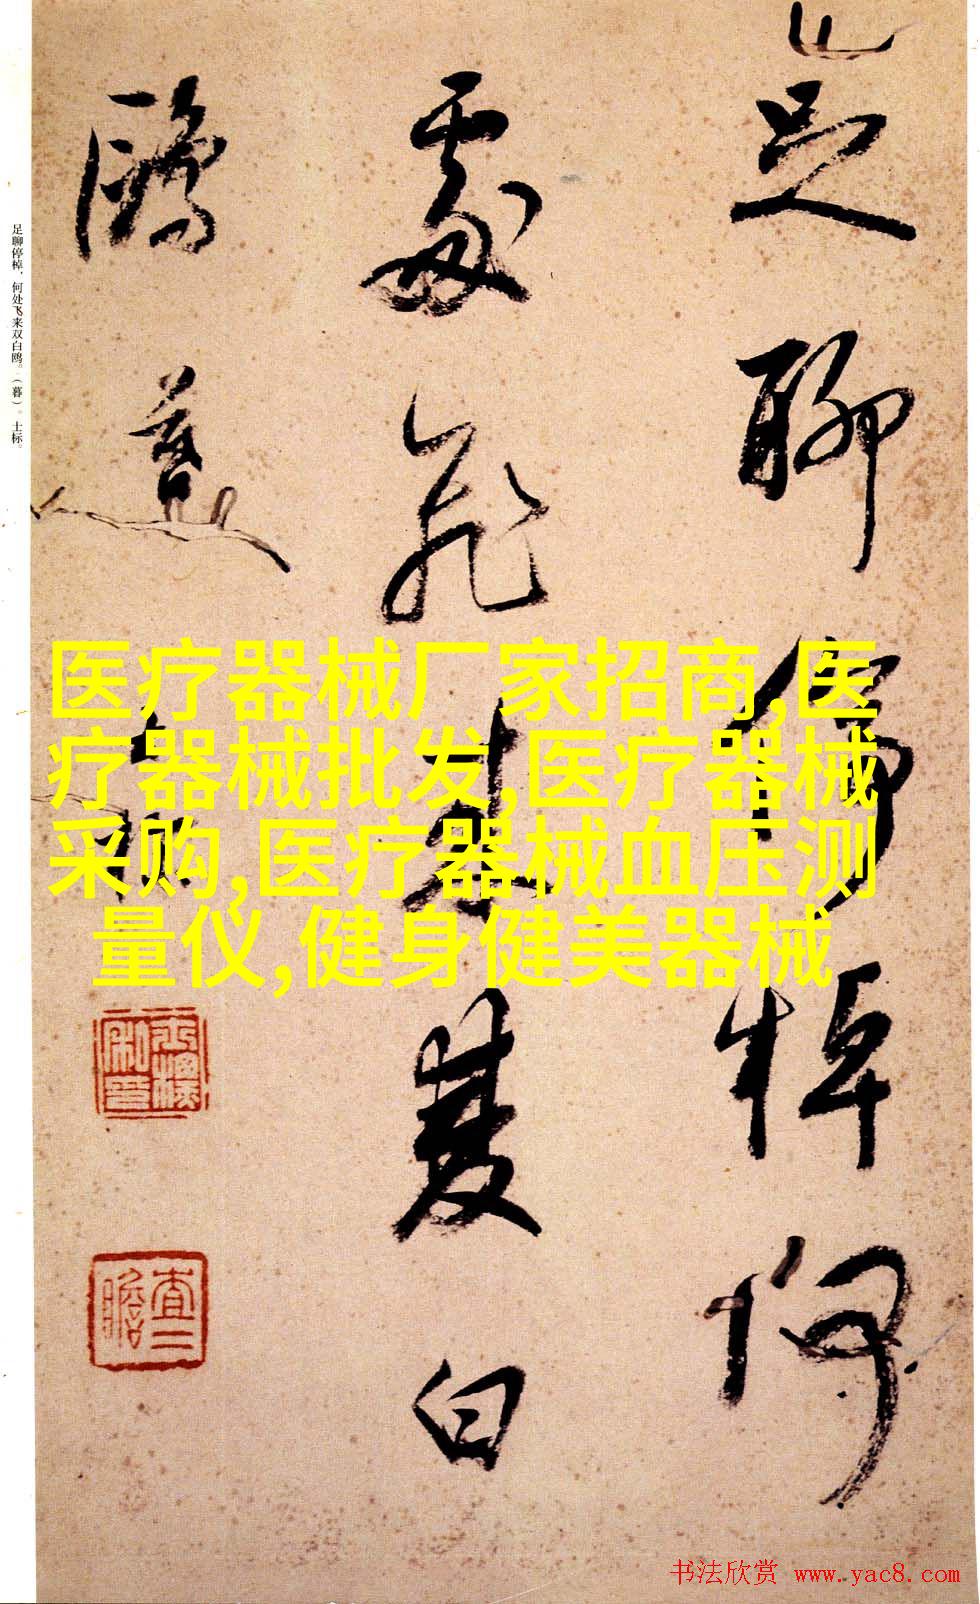 足聊停棹何
處飛来雙白
鷗 暮
士標
士標私印
查二瞻
足聊停棹,何处飞来双白鸥。(暮)。士标。
医疗器械厂家招商,医
疗器械批发,医疗器械
采购,医疗器械血压测
量仪,健身健美器械
书法欣赏 www.yac8.com